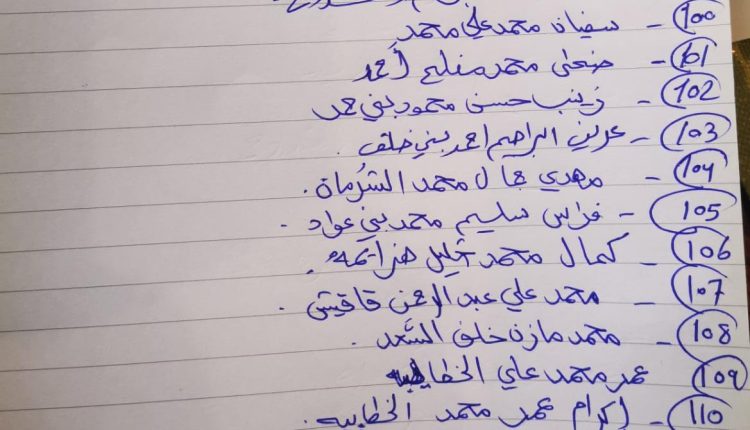 100 - سفيان محمد علي محمد
101 - ضحى محمد مفلح أحمد
102 - زينب حسن محمود بني حمد
103 - عرين ابراهيم احمد بني خلف
104 - مهدي جمال محمد الشرُمان.
105 - فراس سليم محمد بني عواد.
106 - كمال محمد خليل
107 - محمد علي عبد الرحمن قاقيش.
108 - محمد مازن خلف السَّعد.
109 عمر محمد علي الخطايبه
110 - إكرام عمر محمد الخطايبه.